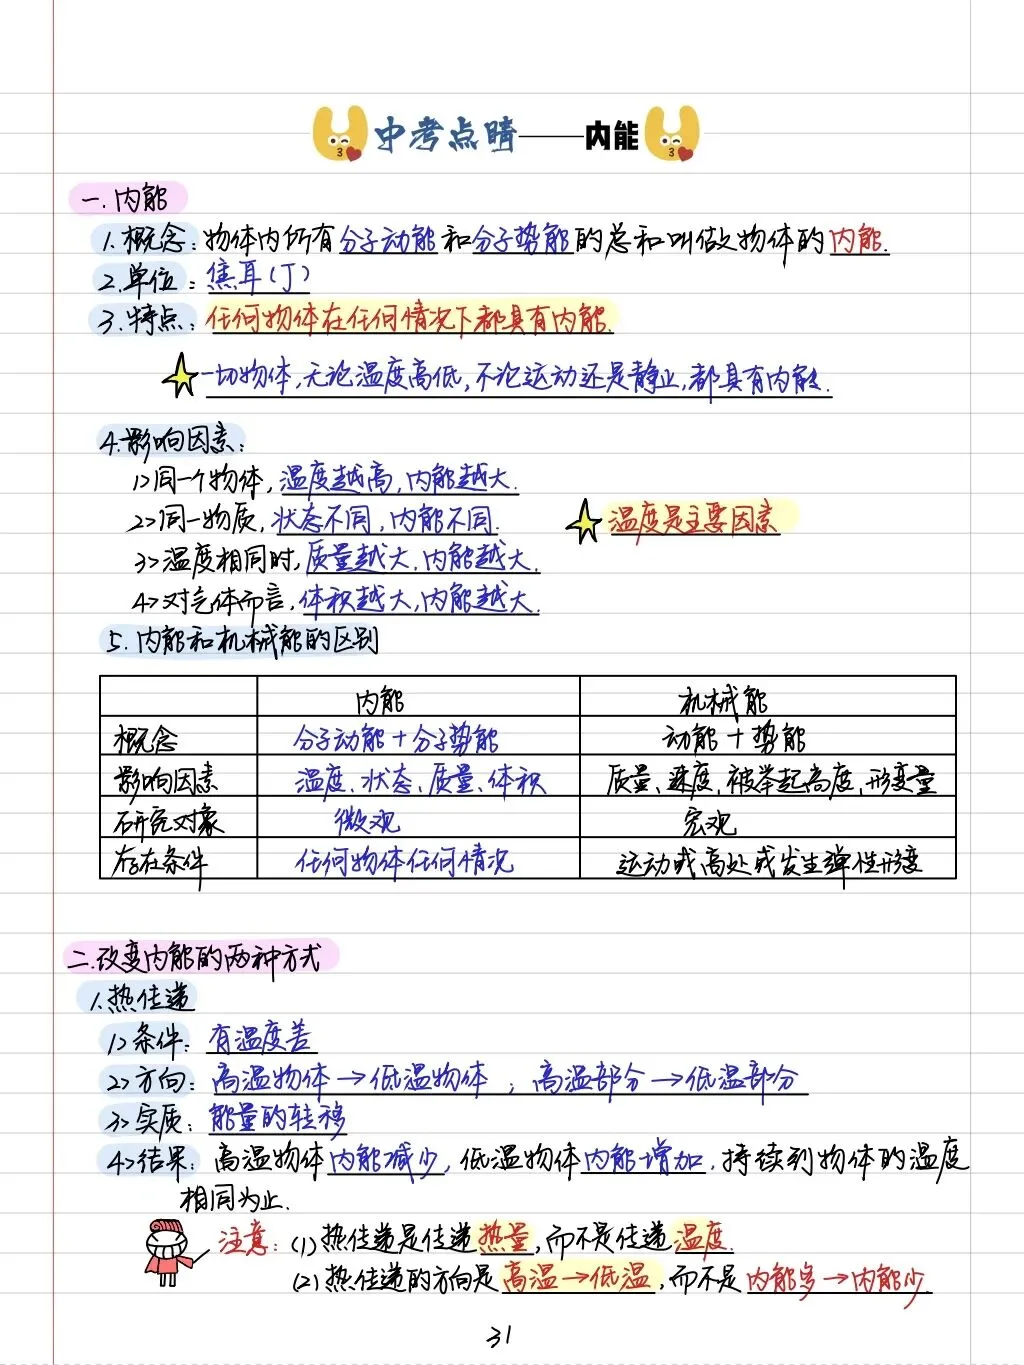 中考点睛——内能
一.内能
1.概念:物体内所有分子动能和分子势能的总和叫做物体的内能.
2.单位:焦耳(J)
3.特点:任何物体在任何情况下都具有内能.
一切物体,无论温度高低,不论运动还是静止,都具有内能.
4.影响因素:
1>同一个物体,温度越高,内能越大.
2>同一物质,状态不同,内能不同. 温度是主要因素
3>温度相同时,质量越大,内能越大.
4>对气体而言,体积越大,内能越大.
5.内能和机械能的区别
内能 机械能
概念 分子动能+分子势能 动能+势能
影响因素 温度、状态、质量、体积 质量、速度、被举起高度、形变量
研究对象 微观 宏观
存在条件 任何物体任何情况 运动或高处或发生弹性形变
二.改变内能的两种方式
1.热传递
1>条件:有温度差
2>方向:高温物体→低温物体;高温部分→低温部分
3>实质:能量的转移
4>结果:高温物体内能减少,低温物体内能增加.持续到物体的温度
相同为止.
注意:(1)热传递是传递热量,而不是传递温度.
(2)热传递的方向是高温→低温,而不是内能多→内能少.
31